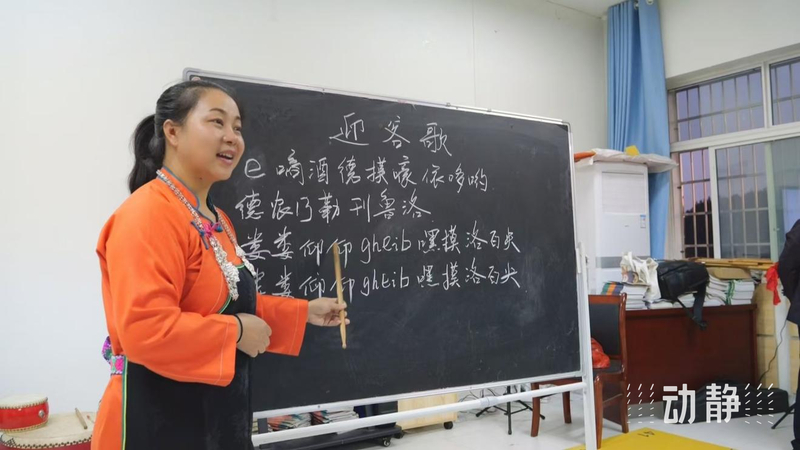 迎客歌
e 嘀酒德摸嗄依哆哟
德农乃勤刊鲁洛
娄娄仰仰gheib嘿摸洛百央
娄娄仰仰gheib嘿摸洛百央
动静